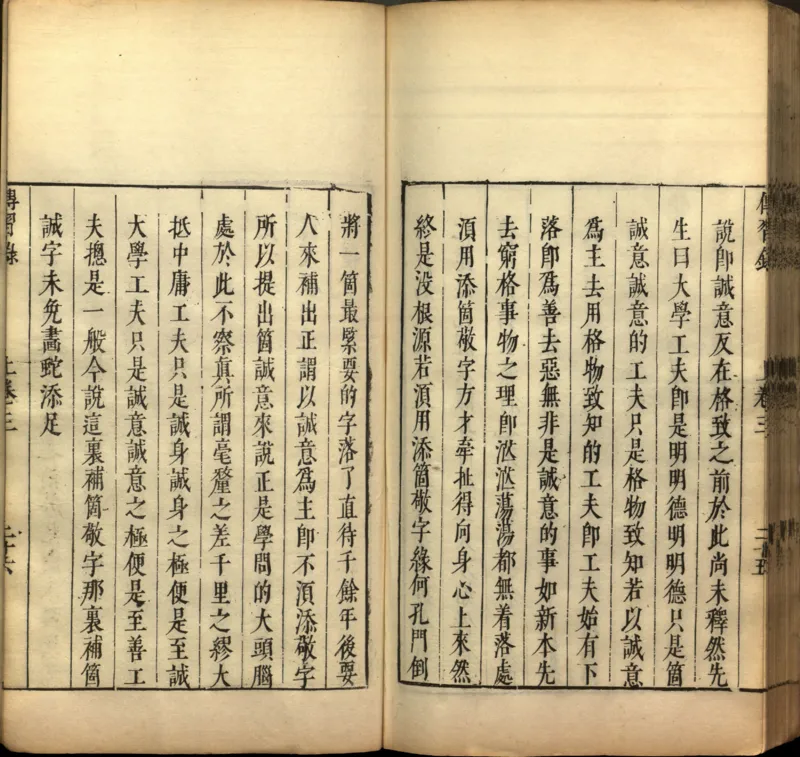 傳習錄 卷三 二十五
說即誠意反在格致之前於此尚未釋然先
生曰大學工夫即是明明德明明德只是箇
誠意誠意的工夫只是格物致知若以誠意
為主去用格物致知的工夫即工夫始有下
落即為善去惡無非是誠意的事如新本先
去窮格事物之理即茫茫蕩蕩都無着落處
湏用添箇敬字方才牽扯得向身心上來然
終是没根源若湏用添箇敬字緣何孔門倒
將一箇最緊要的字落了直待千餘年後要
人來補出正謂以誠意為主即不湏添敬字
所以提出箇誠意來說正是學問的大頭腦
處於此不察真所謂毫釐之差千里之繆大
抵中庸工夫只是誠身誠身之極便是至誠
大學工夫只是誠意誠意之極便是至善工
夫摠是一般今說這裏補箇敬字那裏補箇
誠字未免畫蛇添足
傳習錄 卷三 二十六